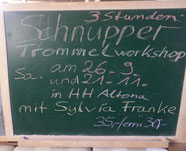 3 Stunden
Schnupper
Trommelworkshop
Sa. am 26. 9
und 21. 11.
in HH Altona
mit Sylvia Franke
35,-/erm 30,-